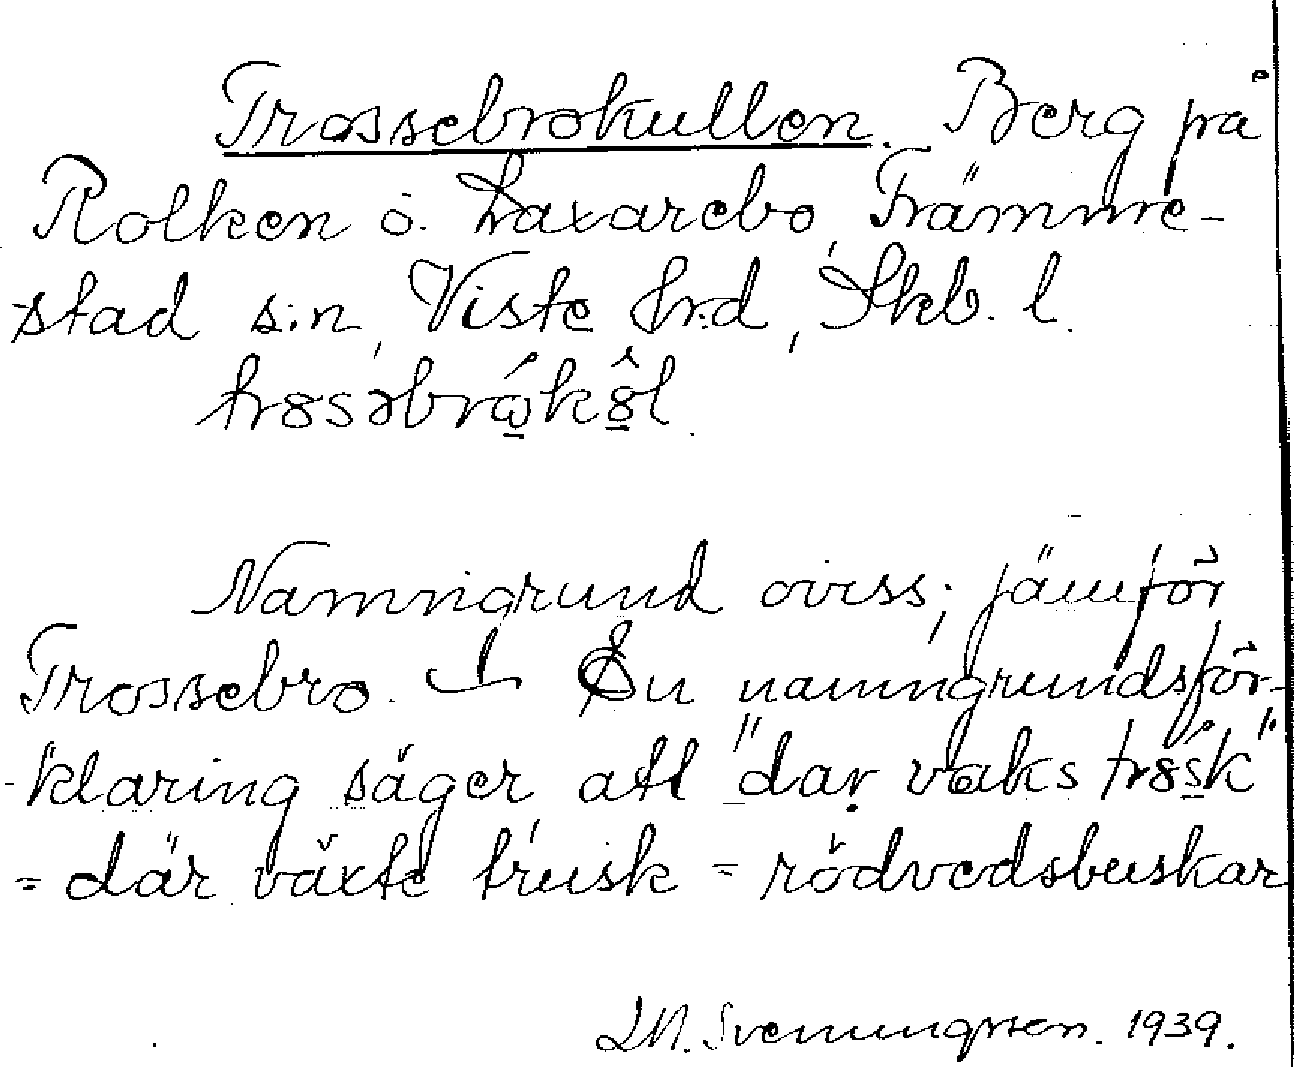 Trossebrokullen. Berg på
Rolken o. Laxarebo, Främme-
stad s:n, Viste hrd, Skb. l.
trɞsəbrɷ́kɞ̂l.
Namngrund oviss; jämför
Trossebro. — En namngrundsför-
klaring säger att "dar vaks trɞsk"
= där växte trusk = rödvedsbuskar
Svenungsson. 1939.